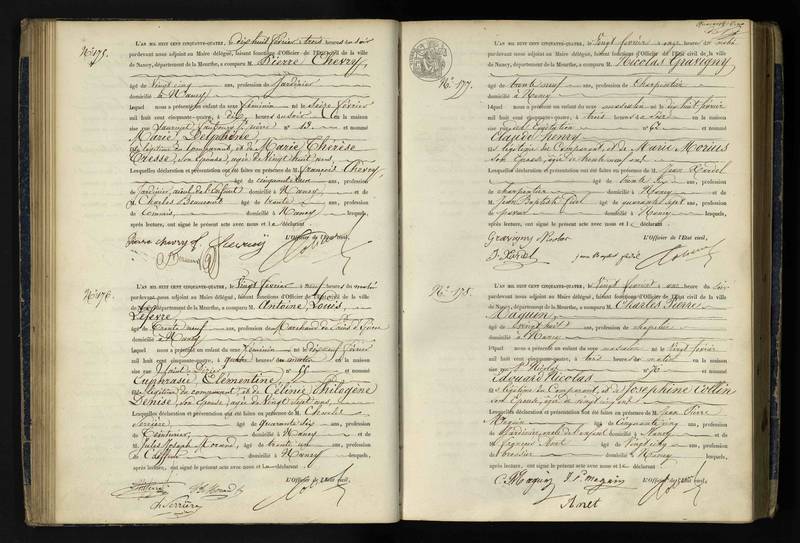 N° 175.
L'AN MIL HUIT CENT CINQUANTE-QUATRE, le dix huit février à trois heures du soir
pardevant nous adjoint au Maire délégué, faisant fonctions d'Officier de l'Etat civil de la ville
de Nancy, département de la Meurthe, a comparu M. Pierre Chevry,
âgé de vingt cinq ans, profession de Jardinier
domicilié à Nancy
lequel nous a présenté un enfant du sexe féminin né le seize février
mil huit cent cinquante-quatre, à dix heures du soir en la maison
sise rue N° 13. et nommé
Marie Delphine
fille légitime du comparant, et de Marie Thérèse
son épouse, agée de vingt huit ans,
Lesquelles déclaration et présentation ont été faites en présence de M. François Chevry,
âgé de cinquante ans, profession
de Jardinier, aïeul de l'enfant domicilié à Nancy et de
M. Charles Beaumont âgé de trente ans, profession
de commis, domicilié à Nancy lesquels,
après lecture, ont signé le présent acte avec nous et le déclarant.
L'Officier de l'Etat civil,
pierre chevry
N° 176.
L'AN MIL HUIT CENT CINQUANTE-QUATRE, le vingt février à neuf heures du matin
pardevant nous adjoint au Maire délégué, faisant fonctions d'Officier de l'Etat civil de la ville
de Nancy, département de la Meurthe, a comparu M. Antoine Louis
Lefevre
âgé de trente neuf ans, profession de Marchand de
domicilié à Nancy
lequel nous a présenté un enfant du sexe féminin né le dix neuf février
mil huit cent cinquante-quatre, à quatre heures du matin en la maison
sise rue St Dizier N° 55 et nommé
Euphrasie Clémentine
fille légitime du comparant, et de Célinie Philogène
Denise, son épouse, agée de vingt sept ans,
Lesquelles déclaration et présentation ont été faites en présence de M. Charles
Ferrière âgé de quarante six ans, profession
de Teinturier, domicilié à Nancy et de
M. Jules Joseph Morand, âgé de trente un ans, profession
de Coiffeur domicilié à Nancy lesquels,
après lecture, ont signé le présent acte avec nous et le déclarant.
L'Officier de l'Etat civil,
N° 177.
L'AN MIL HUIT CENT CINQUANTE-QUATRE, le vingt février à onze heures du matin
pardevant nous adjoint au Maire délégué, faisant fonctions d'Officier de l'Etat civil de la ville
de Nancy, département de la Meurthe, a comparu M. Nicolas Gravigny
âgé de trente neuf ans, profession de Charpentier
domicilié à Nancy
lequel nous a présenté un enfant du sexe masculin né le dix huit février
mil huit cent cinquante-quatre, à trois heures du soir en la maison
sise rue de l'Equitation N° 67 et nommé
Claude Henry
fils légitime du Comparant, et de Marie
son Epouse, agée de trente neuf ans
Lesquelles déclaration et présentation ont été faites en présence de M. Jean
âgé de trente six ans, profession
de charpentier domicilié à Nancy et de
M. Jean Baptiste âgé de quarante sept ans, profession
de paveur domicilié à Nancy lesquels,
après lecture, ont signé le présent acte avec nous et le déclarant.
L'Officier de l'Etat civil,
Gravigny Nicolas
N° 178.
L'AN MIL HUIT CENT CINQUANTE-QUATRE, le vingt février à une heure du soir
pardevant nous adjoint au Maire délégué, faisant fonctions d'Officier de l'Etat civil de la ville
de Nancy, département de la Meurthe, a comparu M. Charles Pierre
Maguin
âgé de vingt huit ans, profession de chapelier
domicilié à Nancy
lequel nous a présenté un enfant du sexe masculin né le vingt février
mil huit cent cinquante-quatre, à trois heures du matin en la maison
sise rue St Nicolas N° et nommé
Edouard Nicolas
fils légitime du Comparant, et de Joséphine Collin
son Epouse, agée de vingt cinq ans
Lesquelles déclaration et présentation ont été faites en présence de M. Jean Pierre
Maguin âgé de cinquante cinq ans, profession
de Jardinier, aïeul de l'enfant domicilié à Nancy et de
M. âgé de vingt cinq ans, profession
de brossier domicilié à Nancy lesquels,
après lecture, ont signé le présent acte avec nous et le déclarant.
L'Officier de l'Etat civil,
C P Maguin J. P. maguin